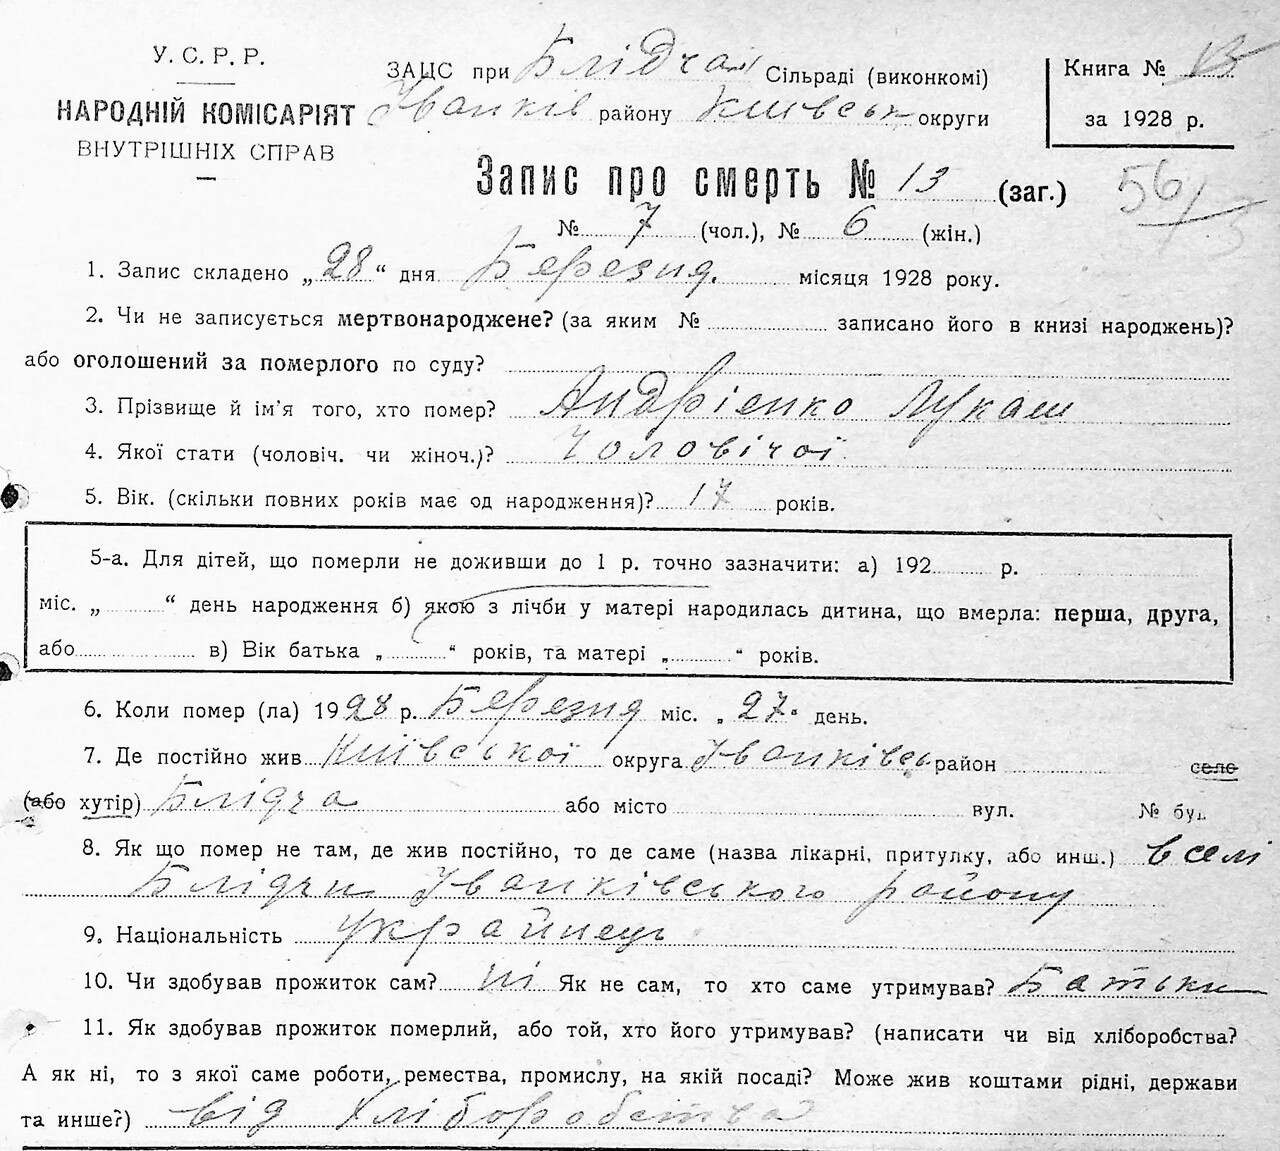 У. С. Р. Р.
НАРОДНІЙ КОМІСАРІЯТ
ВНУТРІШНІХ СПРАВ
ЗАЦС при Блідчан Сільраді (виконкомі)
Іванків району Київськ округи
Книга №
за 1928 р.
Запис про смерть № 13 (заг.)
56
№ 7 (чол.), № 6 (жін.)
1. Запис складено „28“ дня Березня. місяця 1928 року.
2. Чи не записується мертвонароджене? (за яким № записано його в книзі народжень)?
або оголошений за померлого по суду?
3. Прізвище й ім'я того, хто помер? Андрієнко Лукаш
4. Якої стати (чоловіч. чи жіноч.)? Чоловічої
5. Вік. (скільки повних років має од народження)? 17 років.
5-а. Для дітей, що померли не доживши до 1 р. точно зазначити: а) 192 р.
міс. „ “ день народження б) якою з лічби у матері народилась дитина, що вмерла: перша, друга,
або в) Вік батька „ “ років, та матері „ “ років.
6. Коли помер (ла) 1928 р. Березня міс. „27“ день.
7. Де постійно жив Київської округа Іванківсь район село
(або хутір) Блідча або місто вул. № буд.
8. Як що помер не там, де жив постійно, то де саме (назва лікарні, притулку, або инш.) в селі
Блідчи Іванківського району
9. Національність Українець
10. Чи здобував прожиток сам? ні Як не сам, то хто саме утримував? Батьки
11. Як здобував прожиток померлий, або той, хто його утримував? (написати чи від хліборобства?
А як ні, то з якої саме роботи, ремества, промислу, на якій посаді? Може жив коштами рідні, держави
та инше?) від Хліборобства